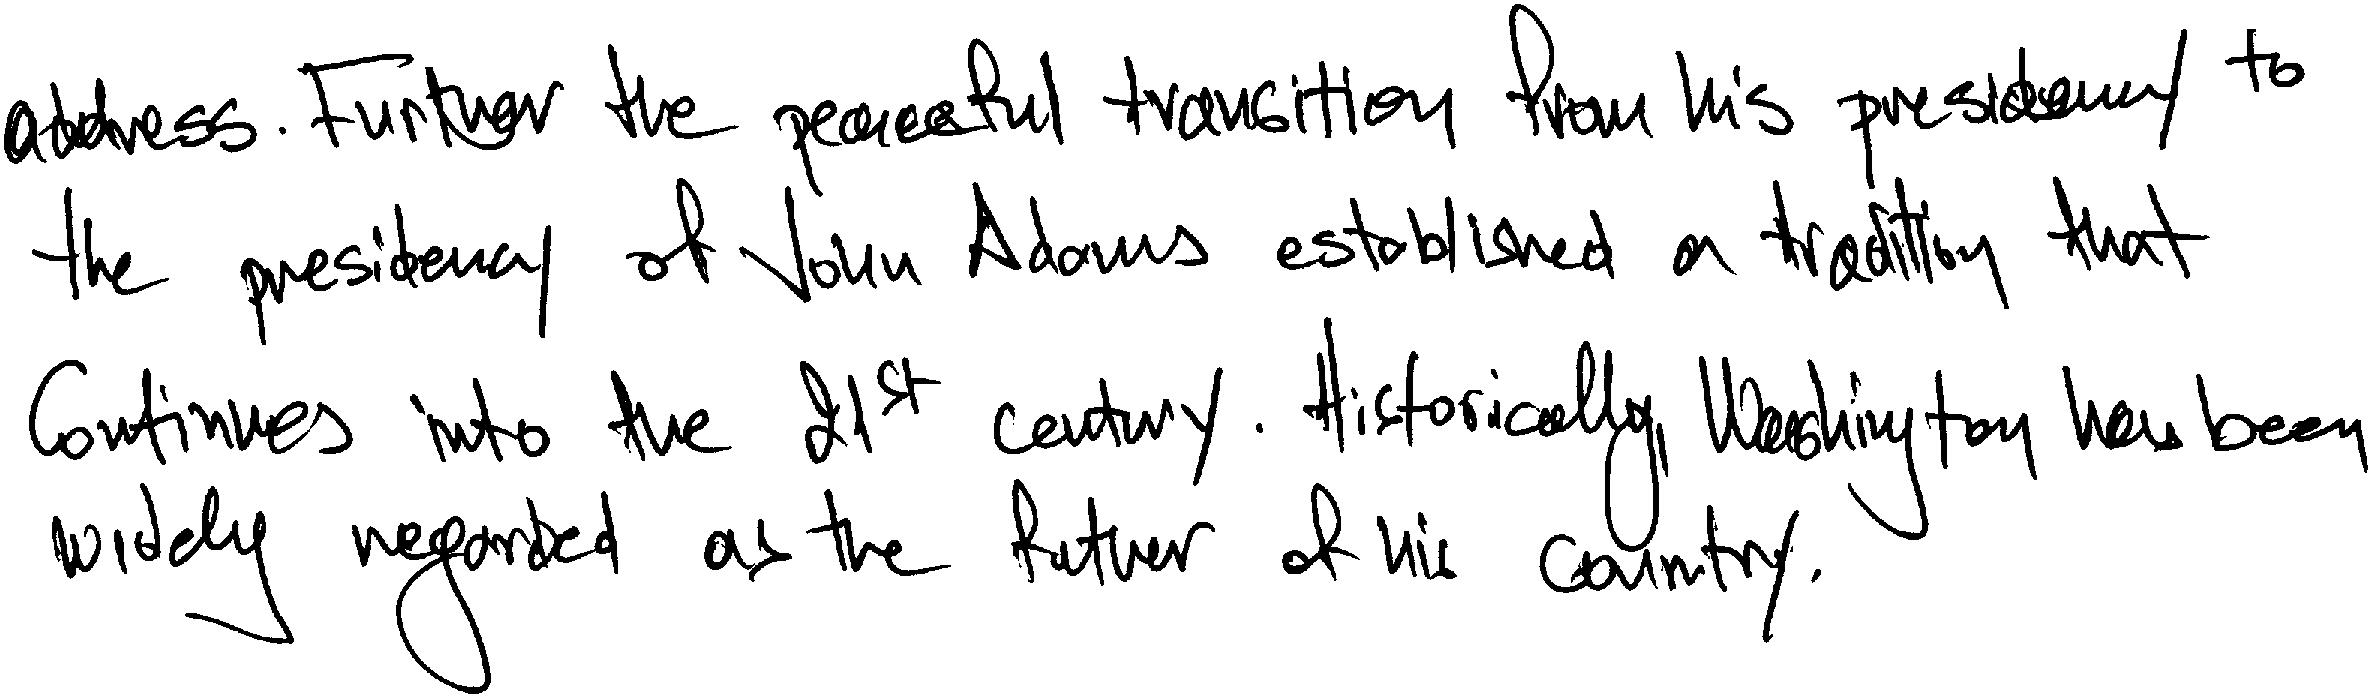 address. Further the peaceful transition from his presidency to
the presidency of John Adams established a tradition that
Continues into the 21st century. Historically, Washington has been
widely regarded as the father of his country.